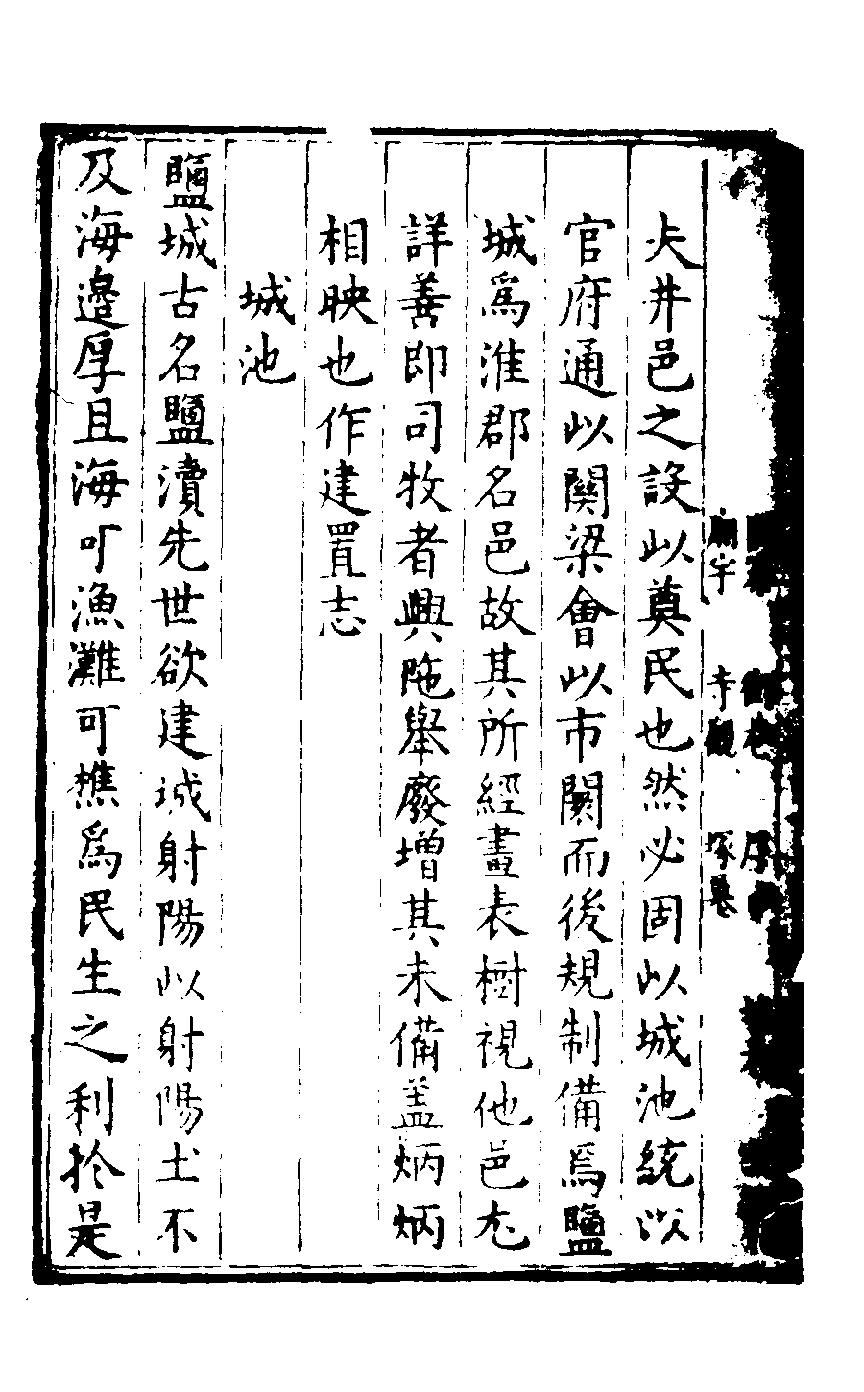 廟宇 寺觀 塚墓
夫井邑之設以奠民也然必固以城池統以
官府通以關梁會以市闤而後規制備焉鹽
城爲淮郡名邑故其所經畫表樹視他邑尤
詳善即司牧者興陁舉廢增其未備盖炳炳
相映也作建置志
城池
鹽城古名鹽瀆先世欲建城射陽以射陽土不
及海邉厚且海可漁灘可樵爲民生之利扵是